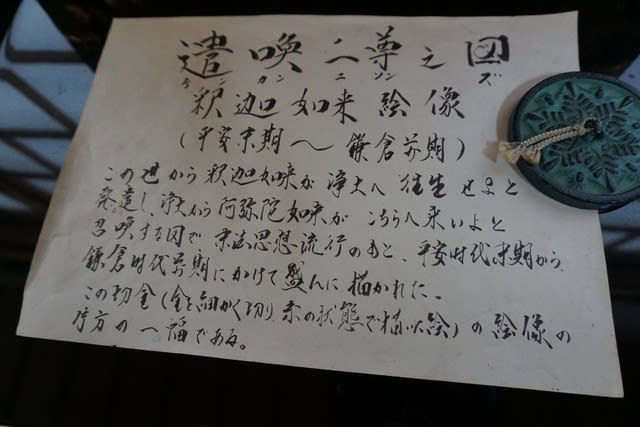 遣喚二尊之図
ケンカンニソンズ
釈迦如来絵像
(平安末期〜鎌倉前期)
この世から釈迦如来が浄土へ往生せよと
発遣し、浄土から阿弥陀如来がこちらへ来いよと
召喚する図で末法思想流行のもと、平安時代末期から
鎌倉時代前期にかけて盛んに描かれた。
この切金(金を細かく切り糸の状態で描いた絵)の絵像の
片方の一幅である。